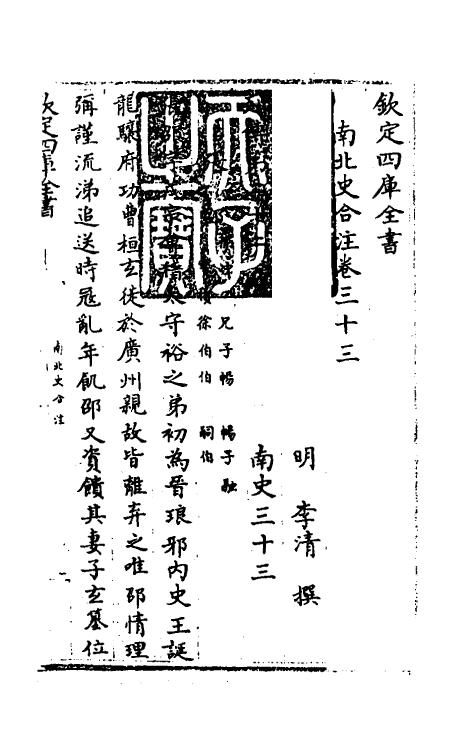 欽定四庫全書
南北史合注卷三十三
明 李清 撰
南史三十三
兄子暢 暢子融
徐伯伯 嗣伯
守裕之弟初為晉琅邪内史王誕
龍驤府功曹桓玄徙於廣州親故皆離弃之唯邵情理
彌謹流涕追送時寇亂年飢邵又資饋其妻子玄簒位
欽定四庫全書
南北史合注
一